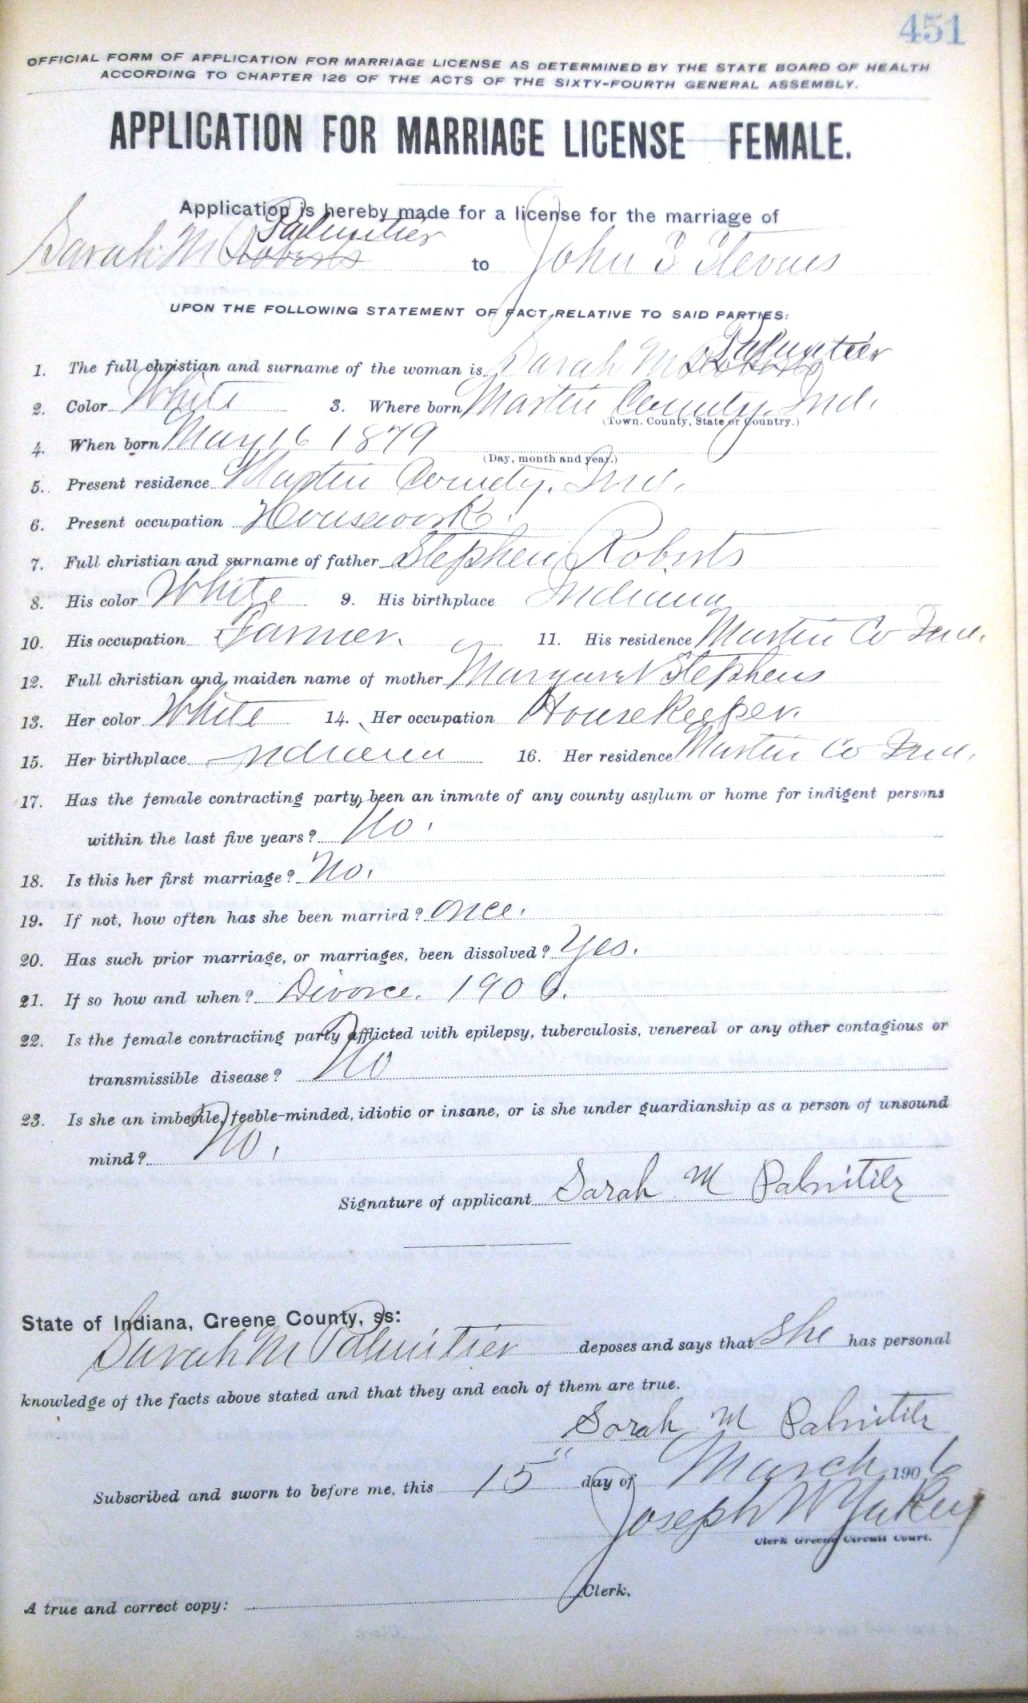 451
OFFICIAL FORM OF APPLICATION FOR MARRIAGE LICENSE AS DETERMINED BY THE STATE BOARD OF HEALTH
ACCORDING TO CHAPTER 126 OF THE ACTS OF THE SIXTY-FOURTH GENERAL ASSEMBLY.
APPLICATION FOR MARRIAGE LICENSE FEMALE.
Application is hereby made for a license for the marriage of
Palmitier
Sarah M Roberts to John T Stevens
UPON THE FOLLOWING STATEMENT OF FACT RELATIVE TO SAID PARTIES:
1. The full christian and surname of the woman is Sarah M Roberts Palmitier
2. Color White 3. Where born Martin County, Ind.
(Town. County, State or Country.)
4. When born May 16 1879
(Day, month and year.)
5. Present residence Martin County, Ind.
6. Present occupation Housework.
7. Full christian and surname of father Stephen Roberts
8. His color White 9. His birthplace Indiana
10. His occupation Farmer. 11. His residence Martin Co Ind.
12. Full christian and maiden name of mother Margaret Stephens
13. Her color White 14. Her occupation Housekeeper.
15. Her birthplace Indiana 16. Her residence Martin Co Ind.
17. Has the female contracting party been an inmate of any county asylum or home for indigent persons
within the last five years? No.
18. Is this her first marriage? No.
19. If not, how often has she been married? Once.
20. Has such prior marriage, or marriages, been dissolved? Yes.
21. If so how and when? Divorce. 1906.
22. Is the female contracting party afflicted with epilepsy, tuberculosis, venereal or any other contagious or
transmissible disease? No
23. Is she an imbecile, feeble-minded, idiotic or insane, or is she under guardianship as a person of unsound
mind? No.
Signature of applicant Sarah M Palmitier
State of Indiana, Greene County, ss:
Sarah M Palmitier deposes and says that She has personal
knowledge of the facts above stated and that they and each of them are true.
Sarah M Palmitier
Subscribed and sworn to before me, this 15" day of March 1906
Joseph W Yakey
Clerk Greene Circuit Court.
Clerk.
A true and correct copy: